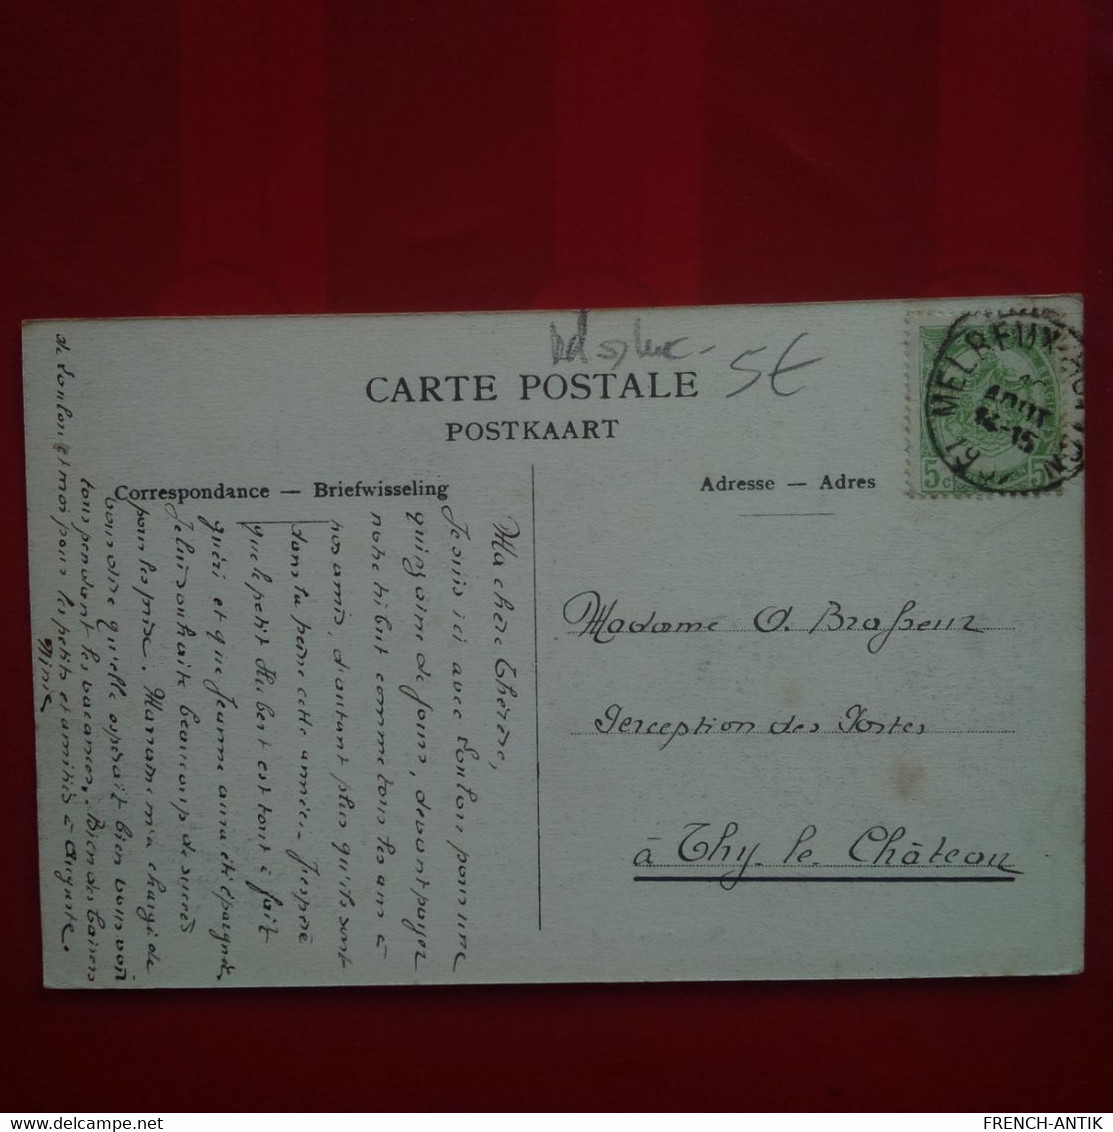 CARTE POSTALE
5€
POSTKAART
Correspondance — Briefwisseling
Adresse — Adres
MELREUX-HOTTON
AOUT
14-15
5c
Ma chère Thérèse,
Je suis ici avec Loulou pour une
quinzaine de jours, devant payer
notre tribut comme tous les ans à
nos amis, d'autant plus qu'ils sont
dans la peine cette année. J'espère
que le petit Hubert est tout à fait
guéri et que Jeanne aura été épargnée
Je lui souhaite beaucoup de succès
pour les prix. Maman m'a chargé de
vous dire qu'elle opérait bien vous voir
tous pendant les vacances. Bien des baisers
de Loulou et moi pour les petits et amitiés à Auguste.
Ninie
Madame O. Brasseur
Perception des Postes
à Thy-le-Château
FRENCH-ANTIK
delcampe.net